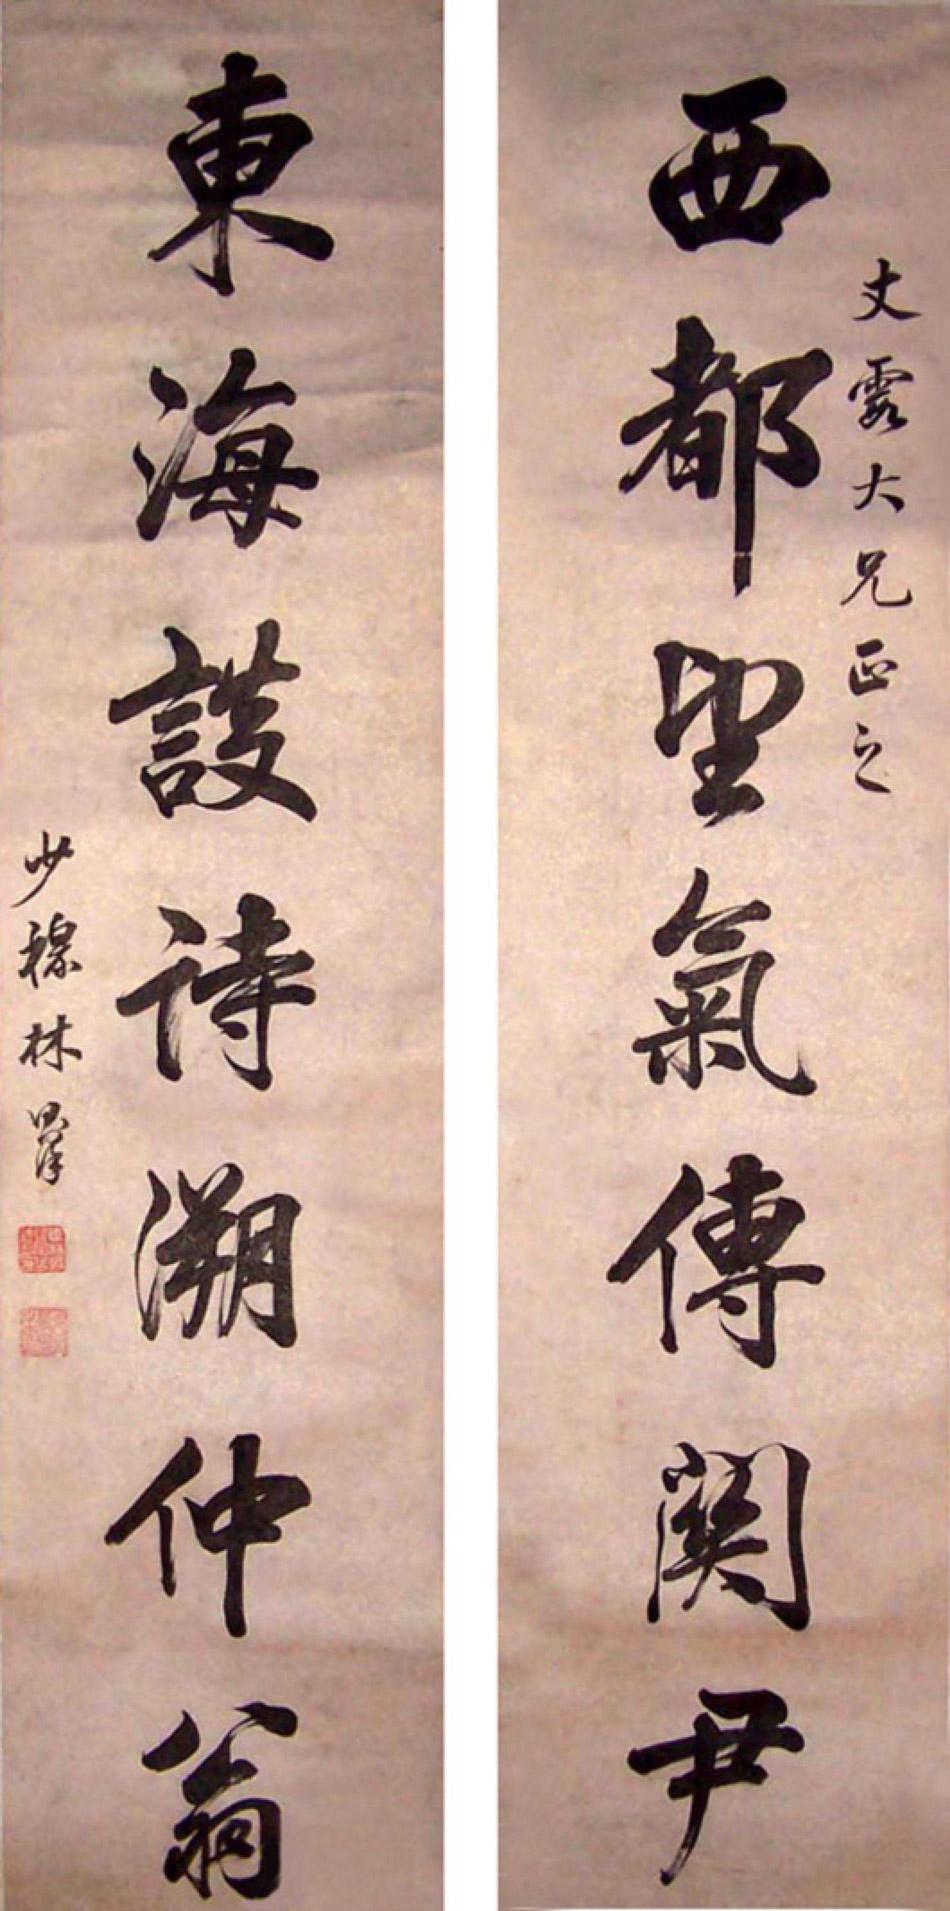 丈霞大兄正之
西都望氣傳關尹
東海談詩溯仲翁
少穆林則徐